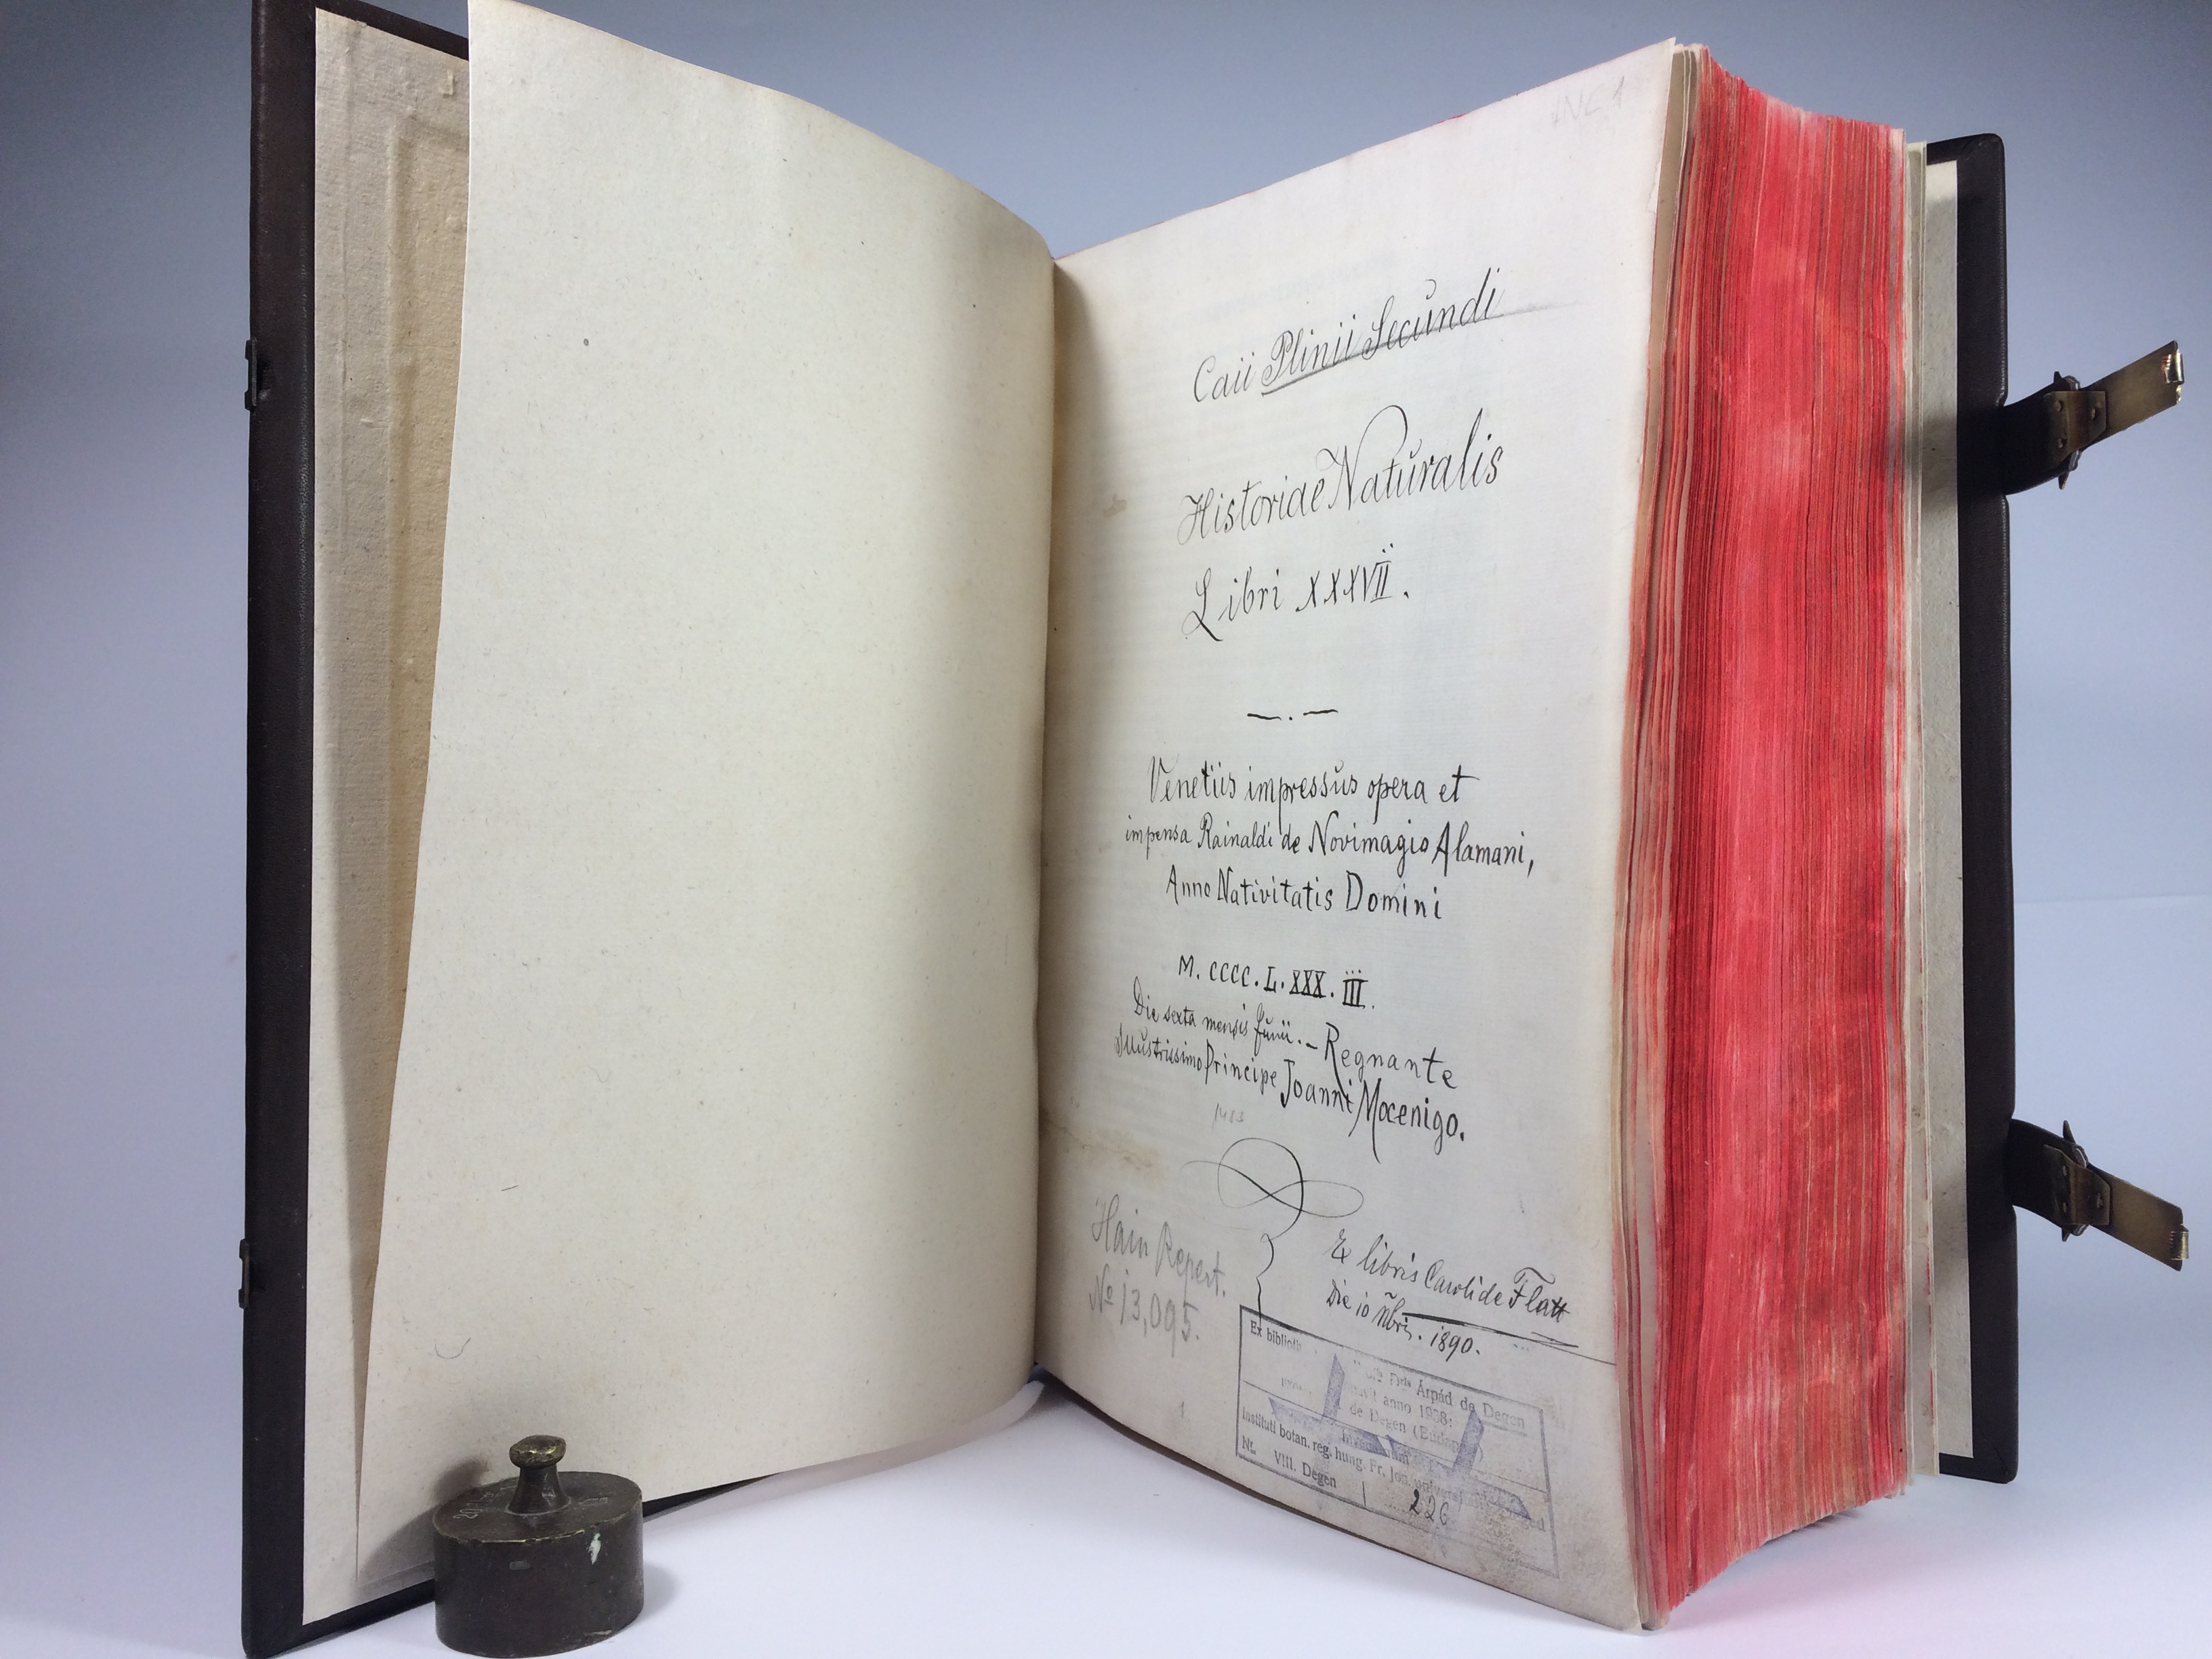 INC 1
Caii Plinii Secundi
Historiae Naturalis
Libri XXXVII.
Venetiis impressus opera et
impensa Rainaldi de Novimagio Alamani,
Anno Nativitatis Domini
M. CCCC. L. XXX. III.
Die sexta mensis Junii. – Regnante
Illustrissimo Principe Joanni Mocenigo.
1483
Hain Repert.
No 13,095.
Ex libris Caroli de Flatt
Die 10 9bris. 1890.
Ex biblioth
Dris Árpád de Degen
anno 1938:
de Degen (Budap
Instituti botan. reg. hung. Fr. Jos.
Nr. VIII. Degen 226